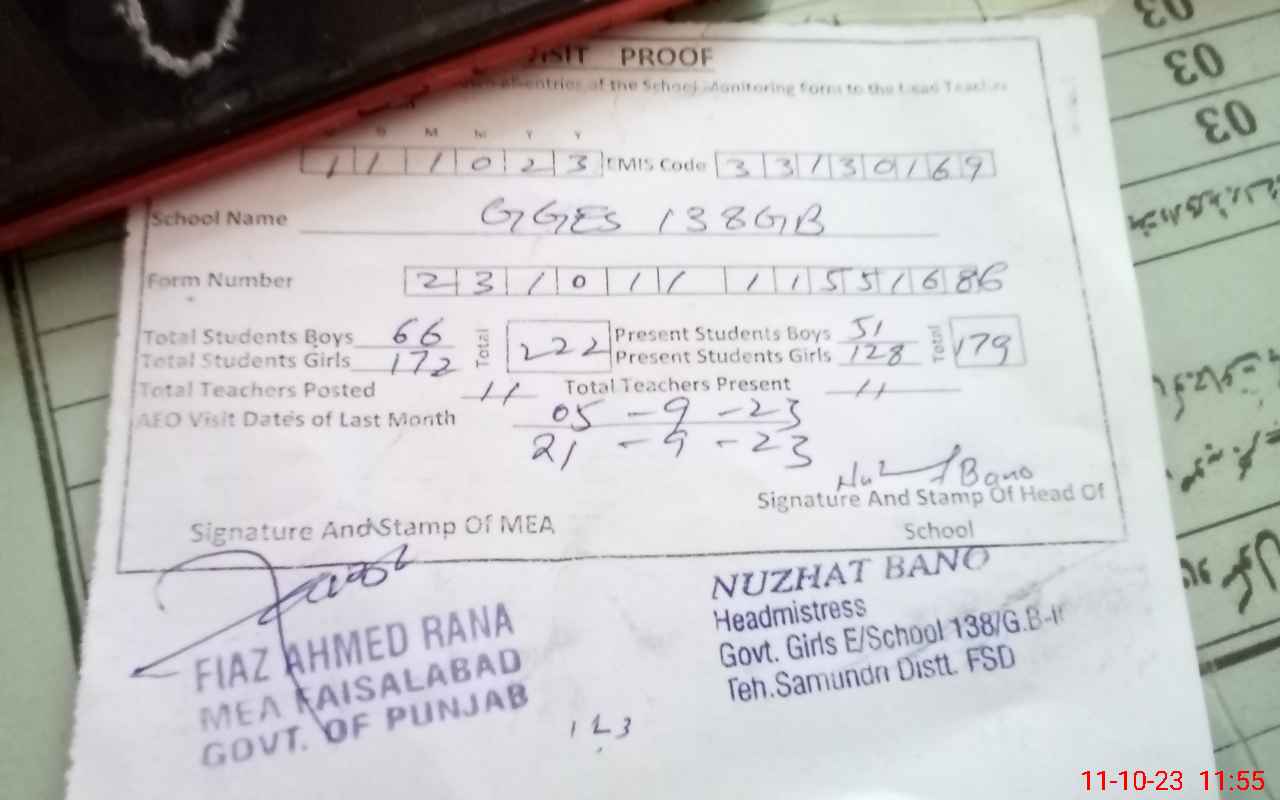 VISIT PROOF
entries of the School Monitoring Form to the Head Teacher
M M Y Y
1 1 1 0 2 3 EMIS Code 3 3 1 3 0 1 6 9
School Name GGES 138GB
Form Number 2 3 1 0 1 1 1 1 5 5 1 6 8 6
Total Students Boys 66 Total 222 Present Students Boys 51 Total 179
Total Students Girls 172 Present Students Girls 128
Total Teachers Posted 11 Total Teachers Present 11
AEO Visit Dates of Last Month 05-9-23
21-9-23
Bano
Signature And Stamp Of MEA
Signature And Stamp Of Head Of School
FIAZ AHMED RANA
MEA FAISALABAD
GOVT. OF PUNJAB
NUZHAT BANO
Headmistress
Govt. Girls E/School 138/G.B-II
Teh.Samundri Distt. FSD
123
03
03
03
11-10-23 11:55